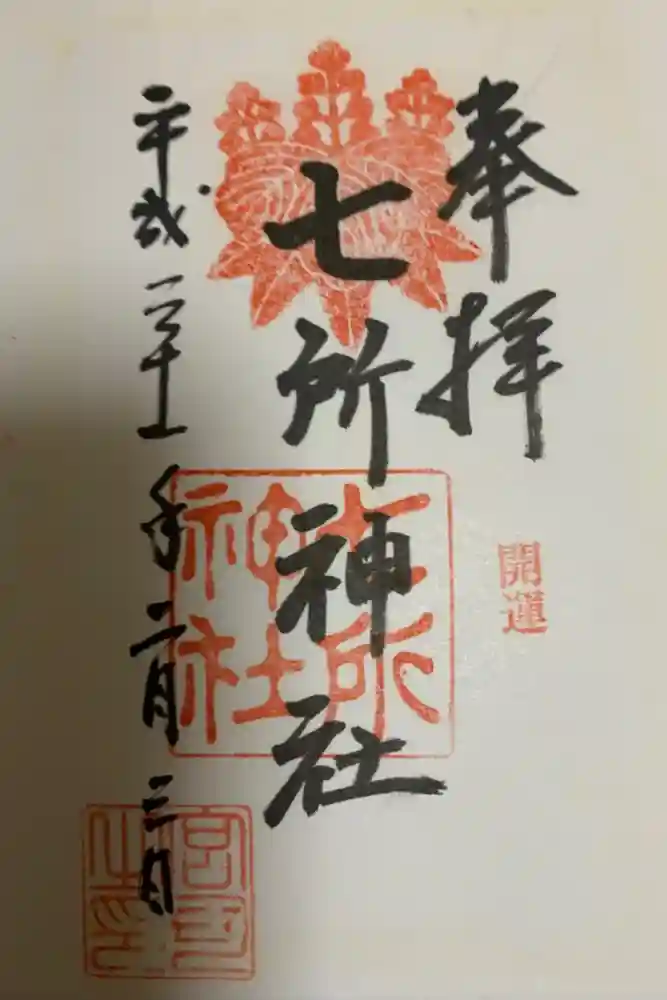 奉拝
開運
七所神社
七所神社
平成三十一年二月三日
宮司之印